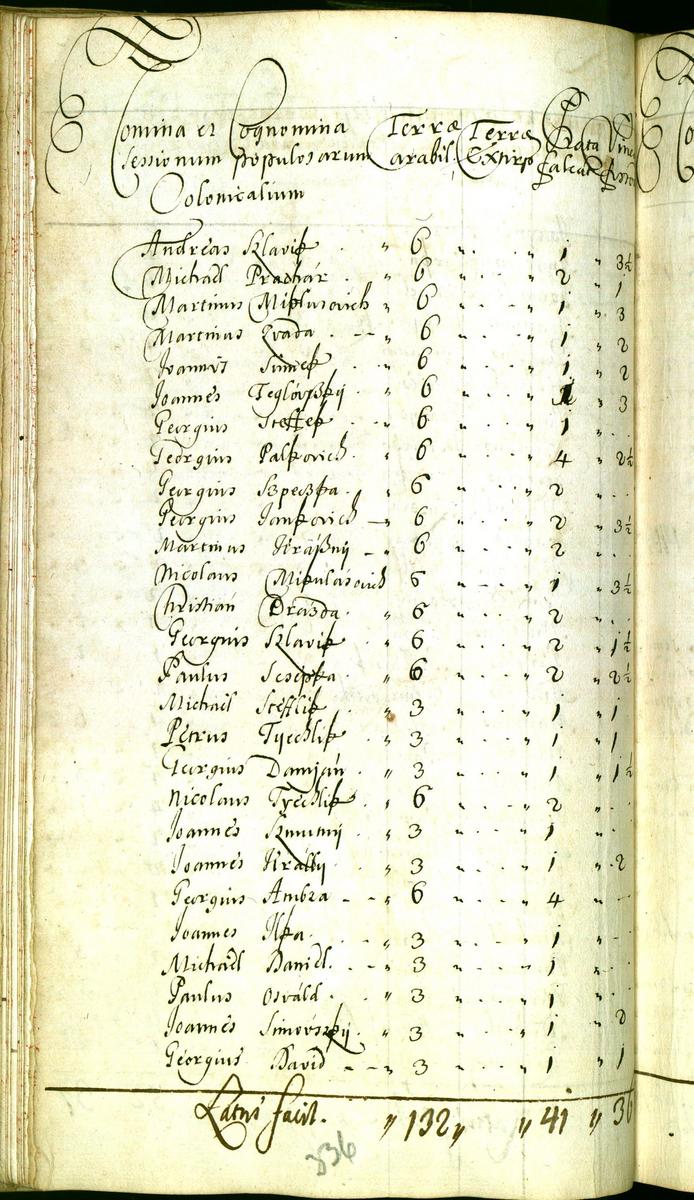 Nomina et Cognomina Terræ Terræ Prata
Sessionum populosarum arabil. Extirp falcat
Colonicalium
Andreas Sklavik 6 1 3½
Michael Prachár 6 2 1
Martinus Miklusovich 6 1 3
Martinus Zvada 6 1 2
Joannes Simek 6 1 2
Joannes Teglovszkij 6 3
Georgius Steffek 6 1
Georgius Palkovich 6 4 2½
Georgius 6 2
Georgius Jankovich 6 2 3½
Martinus Kraßnij 6 2
Nicolaus Mikulasovich 6 1 3½
Christian Drazda 6 2
Georgius Sklavik 6 2 1½
Paulus 6 2 2½
Michael Stefflik 3 1 1
Petrus Tyechlik 3 1 1
Georgius Damján 3 1 1½
Nicolaus Tyechlik 6 2
Joannes 3 1
Joannes Krally 3 1 2
Georgius Ambra 6 4
Joannes Ilka 3 1
Michael Daniel 3 1
Paulus Osváld 3 1
Joannes Simovszkij 3 1 2
Georgius David 3 1 1
Latus facit. 132 41 36
336